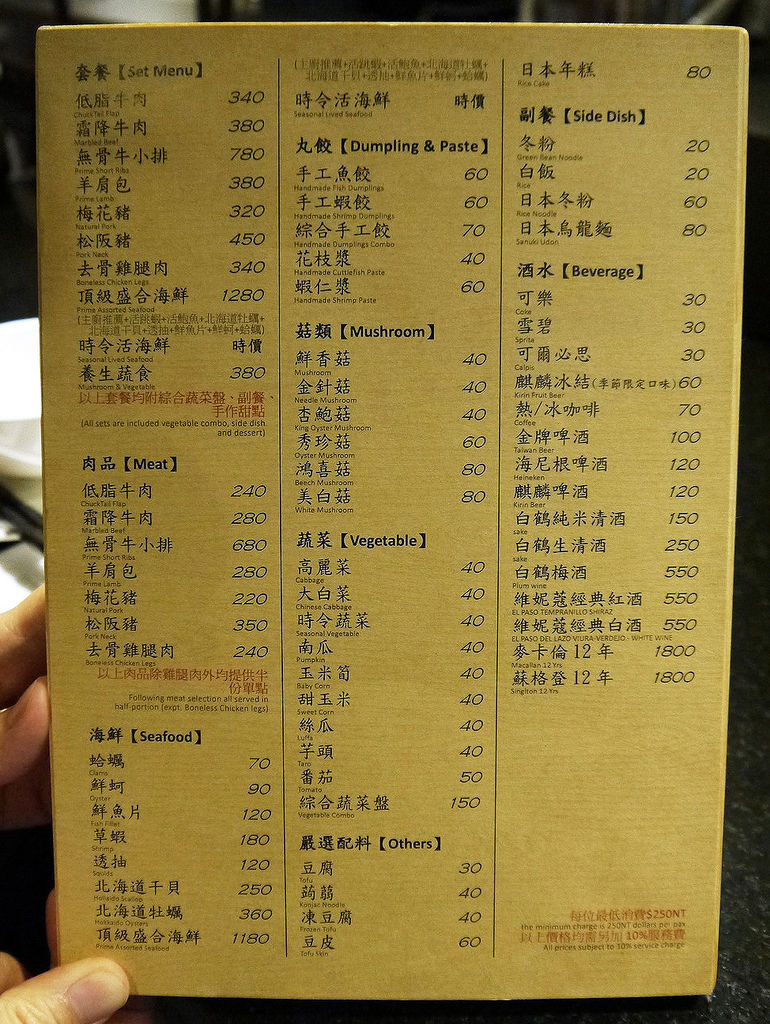 套餐【Set Menu】
低脂牛肉 340
ChuckTail Flap
霜降牛肉 380
Marbled Beef
無骨牛小排 780
Prime Short Ribs
羊肩包 380
Prime Lamb
梅花豬 320
Natural Pork
松阪豬 450
Pork Neck
去骨雞腿肉 340
Boneless Chicken Legs
頂級盛合海鮮 1280
Prime Assorted Seafood
(主廚推薦+活跳蝦+活鮑魚+北海道牡蠣+
北海道干貝+透抽+鮮魚片+鮮蚵+蛤蠣)
時令活海鮮 時價
Seasonal Lived Seafood
養生蔬食 380
Mushroom & Vegetable
以上套餐均附綜合蔬菜盤、副餐、
手作甜點
(All sets are included vegetable combo, side dish
and dessert)
肉品【Meat】
低脂牛肉 240
ChuckTail Flap
霜降牛肉 280
Marbled Beef
無骨牛小排 680
Prime Short Ribs
羊肩包 280
Prime Lamb
梅花豬 220
Natural Pork
松阪豬 350
Pork Neck
去骨雞腿肉 240
Boneless Chicken Legs
以上肉品除雞腿肉外均提供半
份單點
Following meat selection all served in
half-portion (expt. Boneless Chicken legs)
海鮮【Seafood】
蛤蠣 70
Clams
鮮蚵 90
Oyster
鮮魚片 120
Fish Fillet
草蝦 180
Shrimp
透抽 120
Squids
北海道干貝 250
Hokkaido Scallop
北海道牡蠣 360
Hokkaido Oysters
頂級盛合海鮮 1180
Prime Assorted Seafood
(主廚推薦+活跳蝦+活鮑魚+北海道牡蠣+
北海道干貝+透抽+鮮魚片+鮮蚵+蛤蠣)
時令活海鮮 時價
Seasonal Lived Seafood
丸餃【Dumpling & Paste】
手工魚餃 60
Handmade Fish Dumplings
手工蝦餃 60
Handmade Shrimp Dumplings
綜合手工餃 70
Handmade Dumplings Combo
花枝漿 40
Handmade Cuttlefish Paste
蝦仁漿 60
Handmade Shrimp Paste
菇類【Mushroom】
鮮香菇 40
Mushroom
金針菇 40
Needle Mushroom
杏鮑菇 40
King Oyster Mushroom
秀珍菇 60
Oyster Mushroom
鴻喜菇 80
Beech Mushroom
美白菇 80
White Mushroom
蔬菜【Vegetable】
高麗菜 40
Cabbage
大白菜 40
Chinese Cabbage
時令蔬菜 40
Seasonal Vegetable
南瓜 40
Pumpkin
玉米筍 40
Baby Corn
甜玉米 40
Sweet Corn
絲瓜 40
Luffa
芋頭 40
Taro
番茄 50
Tomato
綜合蔬菜盤 150
Vegetable Combo
嚴選配料【Others】
豆腐 30
Tofu
蒟蒻 40
Konjac Noodle
凍豆腐 40
Frozen Tofu
豆皮 60
Tofu Skin
日本年糕 80
Rice Cake
副餐【Side Dish】
冬粉 20
Green Bean Noodle
白飯 20
Rice
日本冬粉 60
Rice Noodle
日本烏龍麵 80
Sanuki Udon
酒水【Beverage】
可樂 30
Coke
雪碧 30
Sprite
可爾必思 30
Calpis
麒麟冰結(季節限定口味) 60
Kirin Fruit Beer
熱/冰咖啡 70
Coffee
金牌啤酒 100
Taiwan Beer
海尼根啤酒 120
Heineken
麒麟啤酒 120
Kirin Beer
白鶴純米清酒 150
sake
白鶴生清酒 250
sake
白鶴梅酒 550
Plum wine
維妮蔻經典紅酒 550
EL PASO TEMPRANILLO SHIRAZ
維妮蔻經典白酒 550
EL PASO DEL LAZO VIURA-VERDEJO.- WHITE WINE
麥卡倫 12 年 1800
Macallan 12 Yrs
蘇格登 12 年 1800
Singlton 12 Yrs
每位最低消費$250NT
the minimum charge is 250NT dollars per pax
以上價格均需另加 10%服務費
All prices subject to 10% service charge